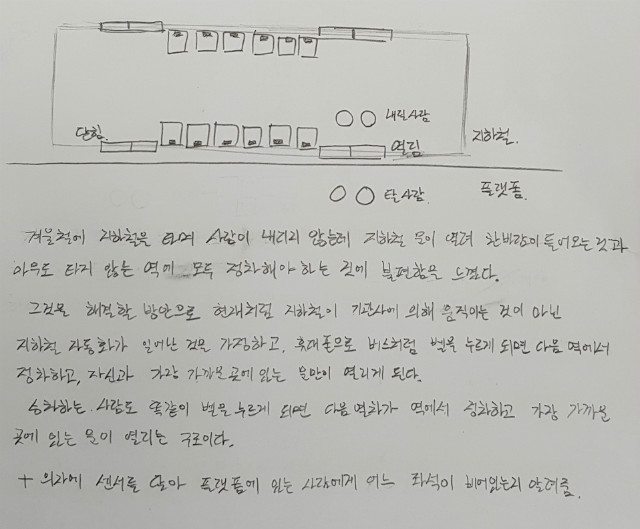 내릴사람
닫힘.
열림
지하철.
탈사람
플랫폼.
겨울철에 지하철을 타며 사람이 내리지 않는데 지하철 문이 열려 찬바람이 들어오는 것과
아무도 타지 않는 역에 모두 정차해야 하는 것에 불편함을 느꼈다.
그것을 해결할 방안으로 현재처럼 지하철이 기관사에 의해 움직이는 것이 아닌
지하철 자동화가 일어난 것을 가정하고, 휴대폰으로 버스처럼 벨을 누르게 되면 다음 역에서
정차하고, 자신과 가장 가까운 곳에 있는 문만이 열리게 된다.
승차하는 사람도 똑같이 벨을 누르게 되면 다음 열차가 역에서 정차하고 가장 가까운
곳에 있는 문이 열리는 구조이다.
+ 의자에 센서를 달아 플랫폼에 있는 사람에게 어느 좌석이 비어있는지 알려줌.